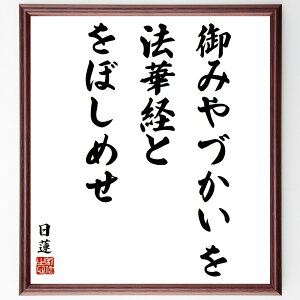 御みやづかいを
法華経と
をぼしめせ
日蓮